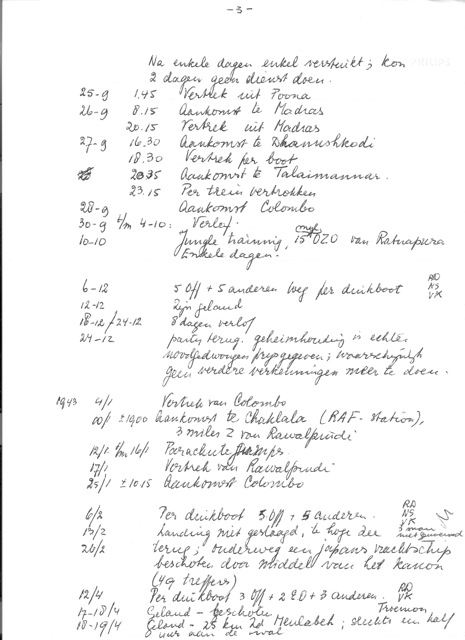 - 3 -
Na enkele dagen enkel verstuikt; kon
2 dagen geen dienst doen.
25-9 1.45 Vertrek uit Poona
26-9 8.15 Aankomst te Madras
20.15 Vertrek uit Madras
27-9 16.30 Aankomst te Dhanushkodi
18.30 Vertrek per boot
20.35 Aankomst te Talaimannar.
23.15 Per trein vertrokken
28-9 Aankomst Colombo
30-9 t/m 4-10: Verlof.
10-10 Jungle training, 15 mijl OZO van Ratnapura
Enkele dagen.
6-12 5 Off + 5 anderen weg per duikboot RD NS VK
12-12 Zijn geland
18-12 / 24-12 8 dagen verlof
24-12 party terug. geheimhouding is echter
noodgedwongen prijsgegeven; waarschijnlijk
geen verdere verkenningen meer te doen.
1943 4/1 Vertrek van Colombo
10/1 ± 1900 Aankomst te Chaklala (RAF-station),
3 miles Z van Rawalpindi
12/1 t/m 16/1 Parachute jumps.
17/1 Vertrek van Rawalpindi
25/1 ± 10.15 Aankomst Colombo
6/2 Per duikboot 5 Off + 5 anderen. RD NS VK
13/2 landing niet geslaagd, te hoge zee 3 man
20/2 terug; onderweg een japans vrachtschip
beschoten door middel van het kanon
(49 treffers)
12/4 Per duikboot 3 Off + 2 + 3 anderen. RD VK
17-18/4 Geland - beschoten
18-19/4 Geland - 25 km Meulabeh; slechts een half
uur aan de wal